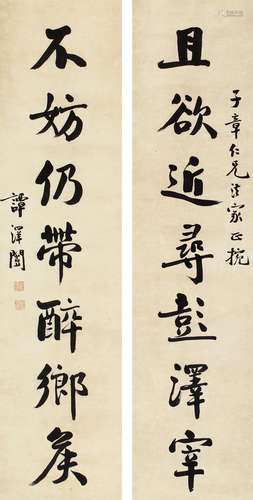 子章仁兄法家正腕
且欲近尋彭澤宰
不妨仍帶醉鄉侯
譚澤闓